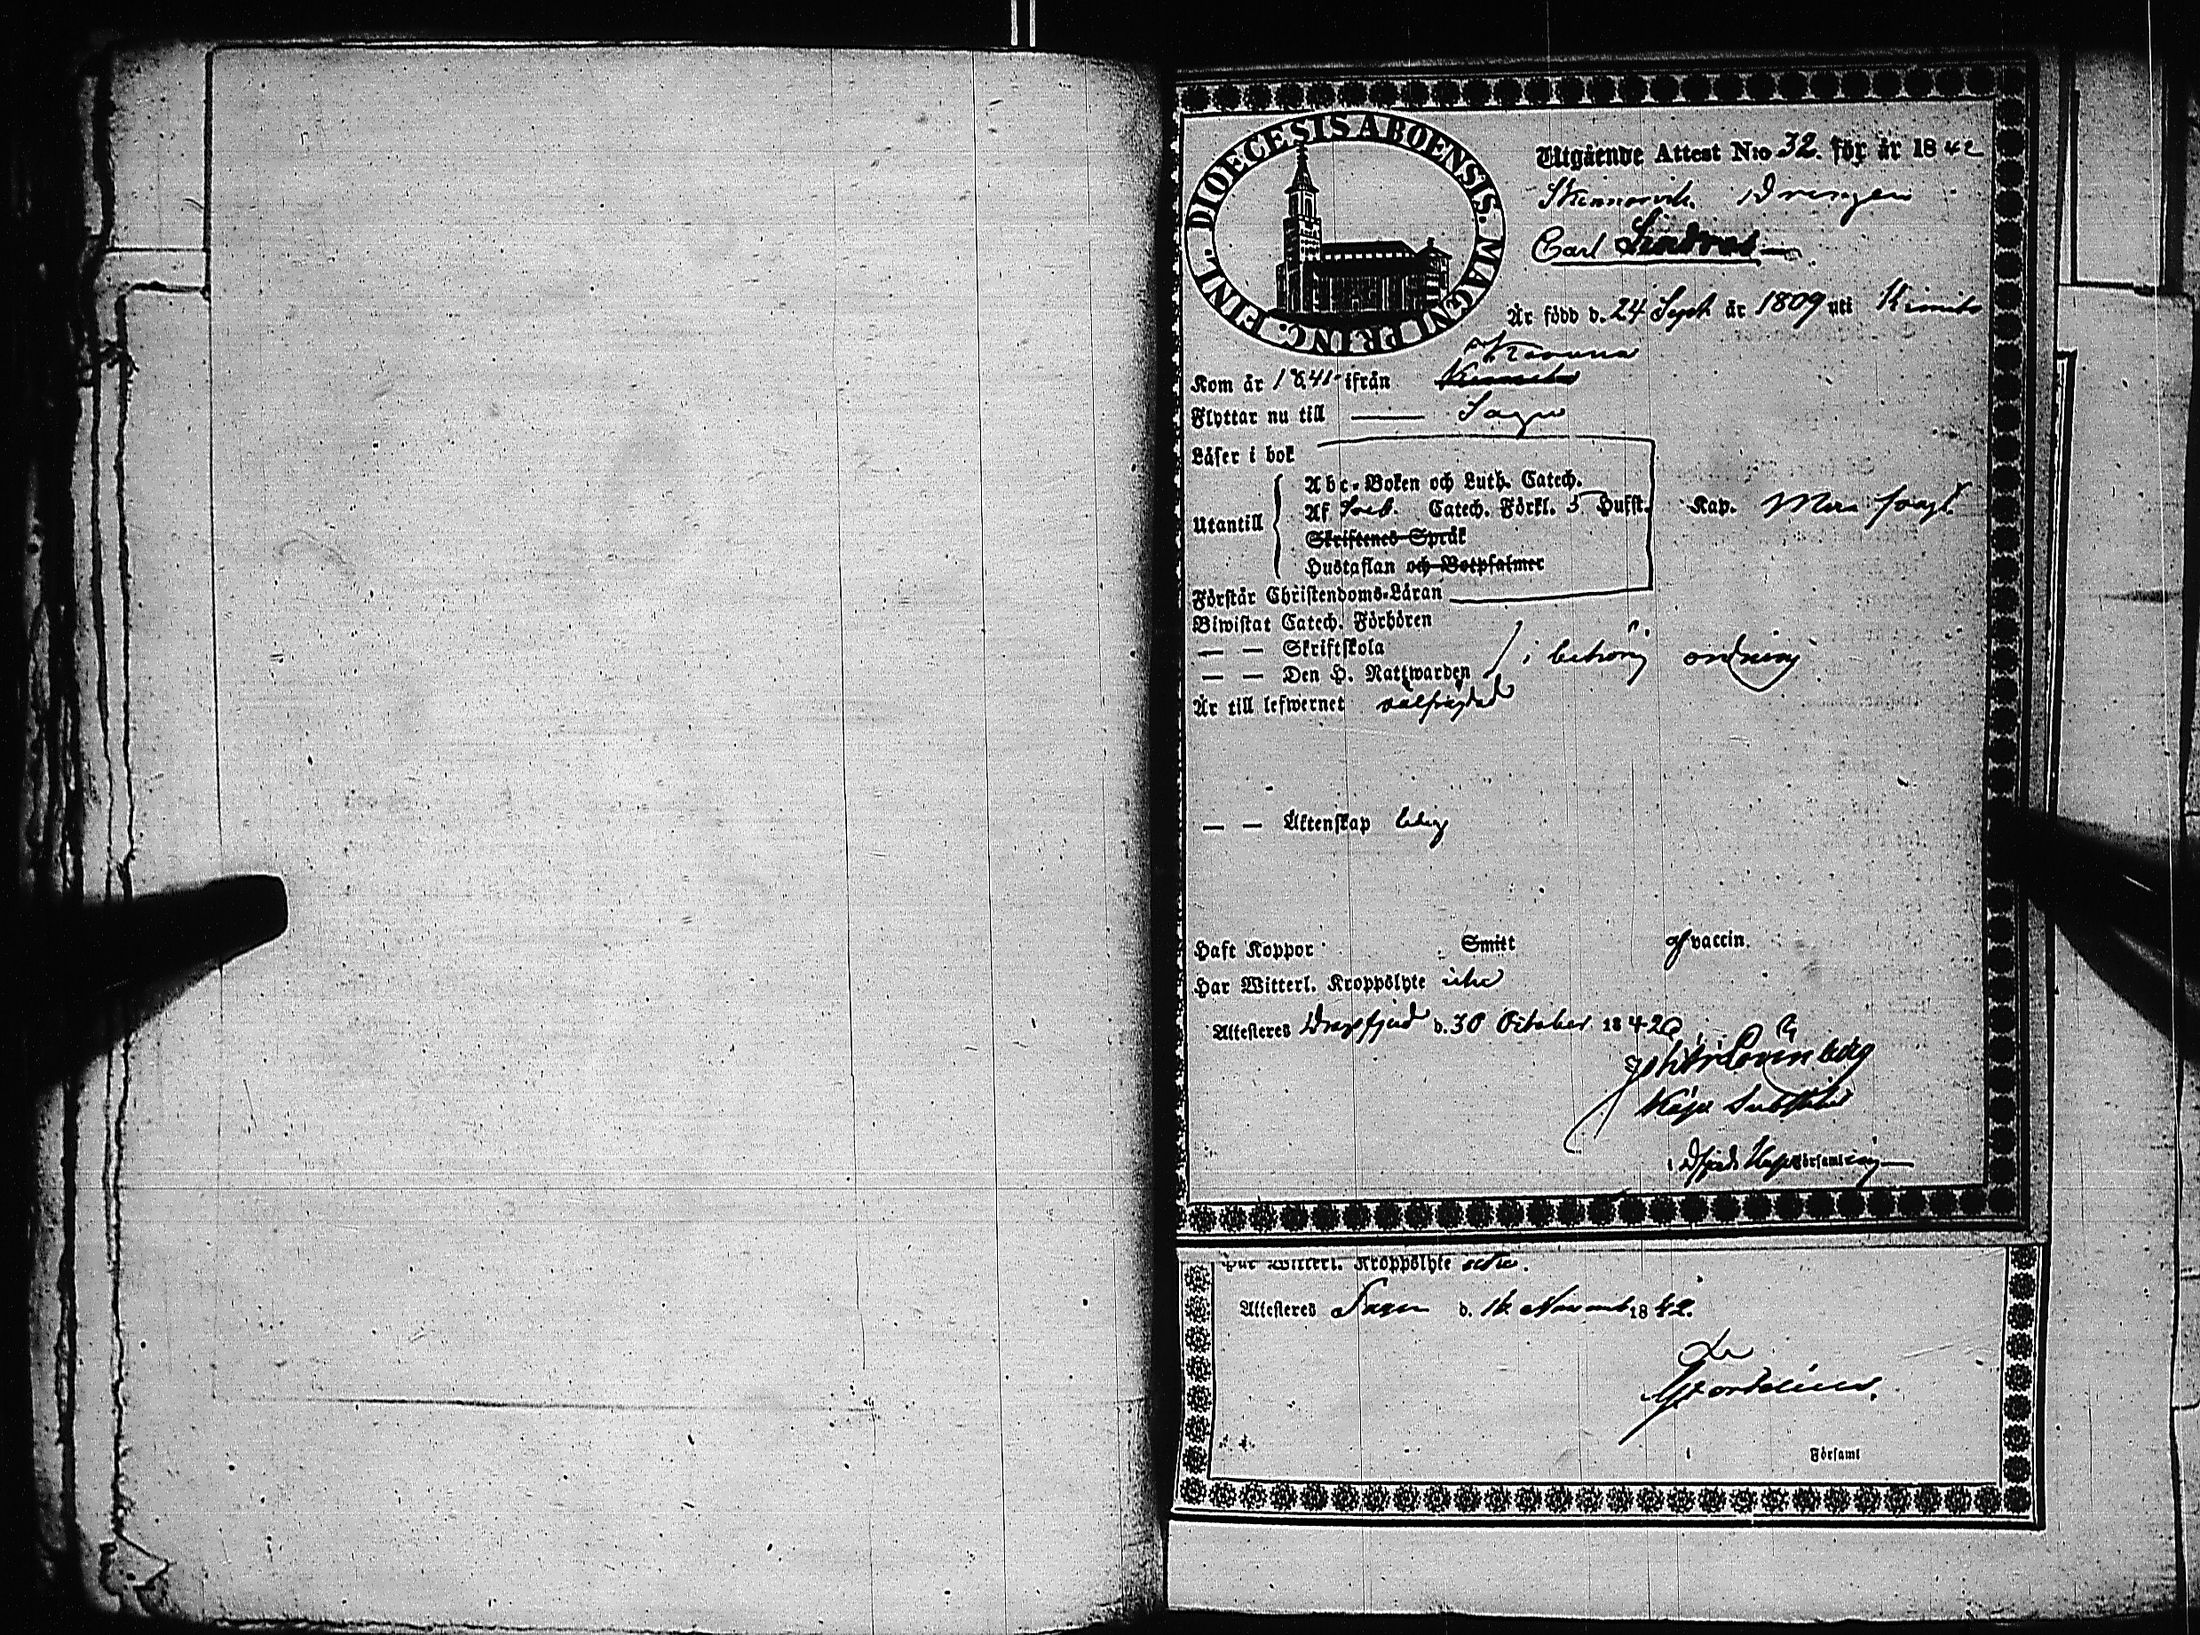 DIOECESIS ABOENSIS. MAGNI PRINC. FINL.
Utgående Attest N:o 32. för år 1842
Drengen
Carl
Är född d. 24 Sept. år 1809 uti Kimito
Kom år 1841 ifrån Kimito
Flyttar nu till — Sagu
Läser i bok
Utantill
Abc-Boken och Luth. Catech.
Af Sveb. Catech. Förkl. 5 Hufst. Kap.
Skriftenes Språk
Hustaflan och Botpsalmer
Förstår Christendoms-Läran
Biwistat Catech. Förhören
— — Skriftskola
— — Den H. Nattwarden i behörig ordning
Är till lefwernet välfräjdad
— — Äktenskap ledig
Haft Koppor Smitt af vaccin.
Har Witterl. Kroppslyte icke
Attesteres Dragsfjerd d. 30 October 1842
Joh:
i Församling
Har Witterl. Kroppslyte icke.
Attesteres Sagu d. Novemb 1842.
i Församl